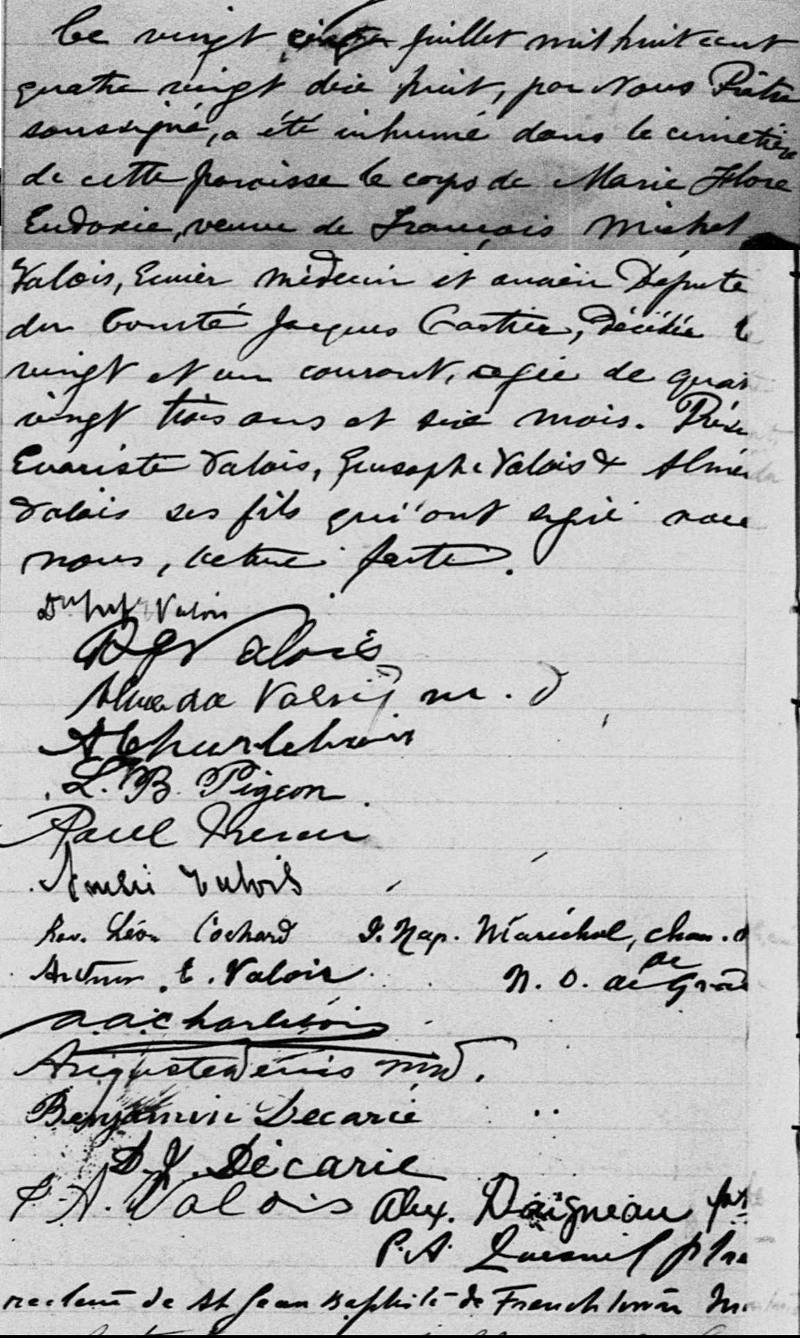 Ce vingt cinq juillet mil huit cent
quatre vingt dix huit, par Nous Prêtre
soussigné, a été inhumé dans le cimetière
de cette paroisse le corps de Marie Flore
Eudoxie, veuve de François Michel
Valois, Ecuier médecin et ancien Député
du Comté Jacques Cartier, Décédée l
vingt et un courant, agée de quat
vingt trois ans et six mois. Prés
Evariste Valois, Valois & Almé
Valois ses fils qui ont signé
nous, lecture faite.
Valois
Valois
Almeda Valois m.d
A Charlebois
L. B. Pigeon
Valois
Rev. Léon Cochard J. Nap. Maréchal, chan.
Arthur E. Valois N. D. de Grâ
de
a.a. charlebois
Auguste Denis MD.
Benjamin Decarie
D. J. Décarie
A. Valois Alex. Daigneau
P. A. Quesnel ptre
de St Jean Baptiste de Frenchtown